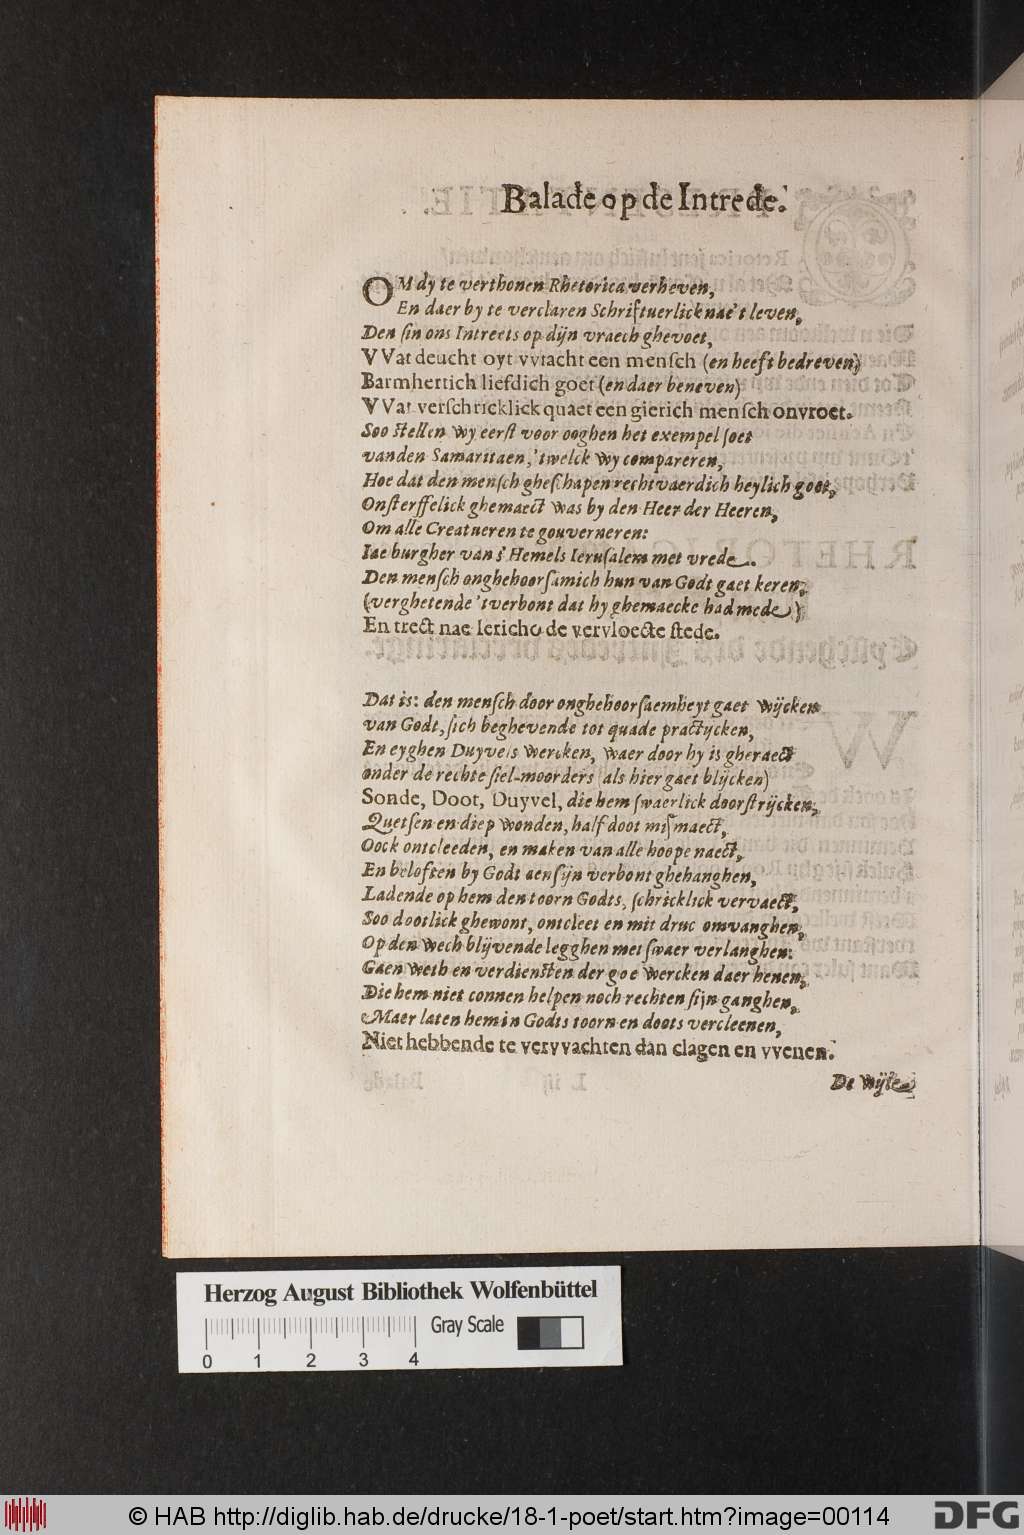 Balade op de Intrede.
OM dy te verthonen Rhetorica verheven,
En daer by te verclaren Schriftuerlick nae't leven,
Den sin ons Intreets op dijn vraech ghevoet,
VVat deucht oyt vvracht een mensch (en heeft bedreven)
Barmhertich liefdich goet (en daer beneven)
VVat verschricklick quaet een gierich mensch onvroet.
Soo stellen wy eerst voor ooghen het exempel soet
vanden Samaritaen, 'twelck wy compareren,
Hoe dat den mensch gheschapen rechtvaerdich heylich goet,
Onsterffelick ghemaect was by den Heer der Heeren,
Om alle Creatueren te gouverneren:
Iae burgher van s' Hemels Ierusalem met vrede.
Den mensch onghehoorsamich hun van Godt gaet keren,
(verghetende 'tverbont dat hy ghemaecke had mede)
En trect nae Iericho de vervloecte stede.
Dat is: den mensch door onghehoorsaemheyt gaet wijcken
van Godt, sich beghevende tot quade practijcken,
En eyghen Duyvels wercken, waer door hy is gheraect
onder de rechte siel-moorders (als hier gaet blijcken)
Sonde, Doot, Duyvel, die hem swaerlick doorstrijcken,
Quetsen en diep wonden, half doot mismaect,
Oock ontcleeden, en maken van alle hoope naect,
En beloften by Godt aen sijn verbont ghehanghen,
Ladende op hem den toorn Godts, schricklick vervaect,
Soo dootlick ghewont, ontcleet en mit druc omvanghen,
Op den wech blijvende legghen met swaer verlanghen:
Gaen weth en verdiensten der goe wercken daer henen,
Die hem niet connen helpen noch rechten sijn ganghen,
Maer laten hem in Godts toorn en doots vercleenen,
Niet hebbende te vervvachten dan clagen en vvenen.
De wijle
Herzog August Bibliothek Wolfenbüttel
Gray Scale
0 1 2 3 4
© HAB http://diglib.hab.de/drucke/18-1-poet/start.htm?image=00114
DFG